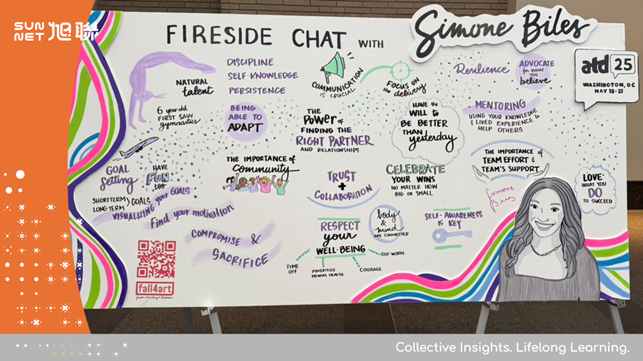 SUN
NET 旭聯
FIRESIDE CHAT WITH
Simone Biles
NATURAL
talent
6 year old
FIRST SAW
gymnastics
DISCIPLINE
SELF-KNOWLEDGE
PERSISTENCE
COMMUNICATION
IS CRUCIAL
FOCUS ON
the delivery
Resilience
ADVOCATE
for what
you
believe
atd 25
WASHINGTON, DC
MAY 18-21
BEING
ABLE TO
ADAPT
THE
Power of
FINDING THE
RIGHT PARTNER
AND RELATIONSHIPS
HAVE THE
WILL to
BE BETTER
THAN
yesterday
MENTORING
USING YOUR KNOWLEDGE
& LIVED EXPERIENCE to
HELP OTHERS
GOAL
Setting
HAVE
FUN
too
SHORT-TERM &
LONG-TERM GOALS
VISUALIZING your GOALS
Find your motivation
THE IMPORTANCE of
Community
TRUST
+
COLLABORATION
CELEBRATE
YOUR WINS
NO MATTER HOW
BIG or SMALL
THE IMPORTANCE of
TEAM EFFORT &
TEAM'S SUPPORT
Simone
Biles
LOVE
WHAT YOU
DO
TO SUCCEED
COMPROMISE &
SACRIFICE
RESPECT
your
WELL-BEING
TIME
OFF
PRIORITIZE
MENTAL HEALTH
COURAGE
SELF WORTH
body
&
mind
ARE CONNECTED
SELF-AWARENESS
IS KEY
fall4art
Collective Insights. Lifelong Learning.